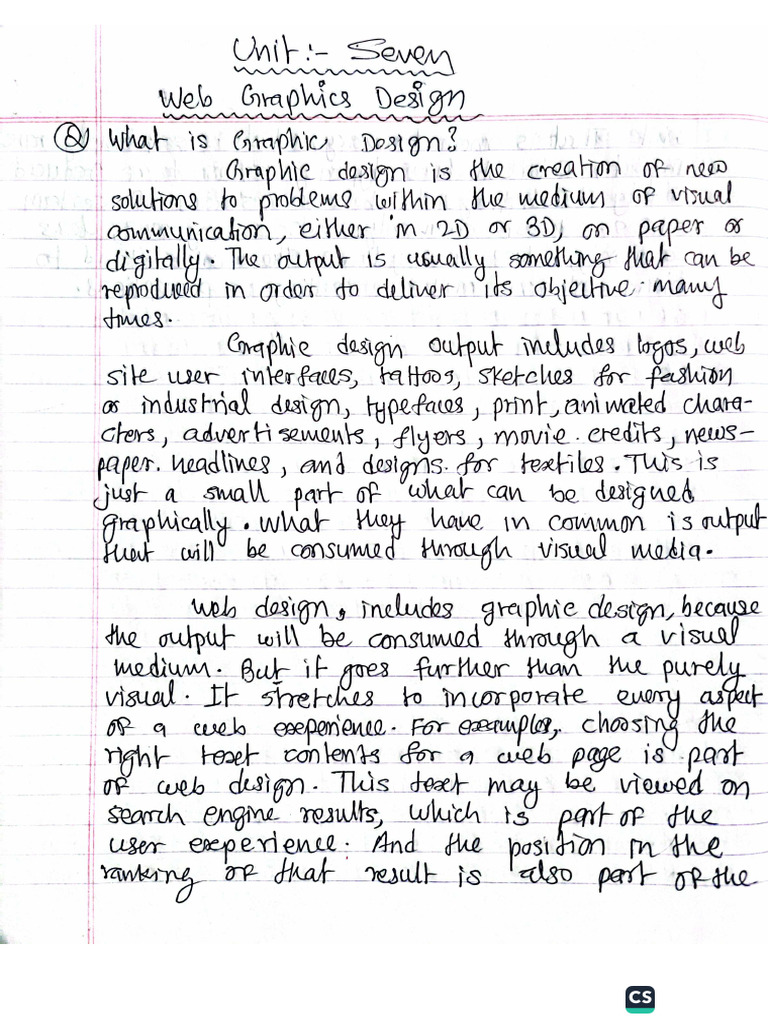 Unit:- Seven
Web Graphics Design
Q) What is Graphic Design?
Graphic design is the creation of new
solutions to problems within the medium of visual
communication, either in 2D or 3D, on paper or
digitally. The output is usually something that can be
reproduced in order to deliver its objective many
times.
Graphic design output includes logos, web
site user interfaces, tattoos, sketches for fashion
or industrial design, typefaces, print, animated chara-
cters, advertisements, flyers, movie credits, news-
paper headlines, and designs for textiles. This is
just a small part of what can be designed
graphically. What they have in common is output
that will be consumed through visual media.
Web design, includes graphic design, because
the output will be consumed through a visual
medium. But it goes further than the purely
visual. It stretches to incorporate every aspect
of a web experience. For examples, choosing the
right text contents for a web page is part
of web design. This text may be viewed on
search engine results, which is part of the
user experience. And the position in the
ranking of that result is also part of the
CS